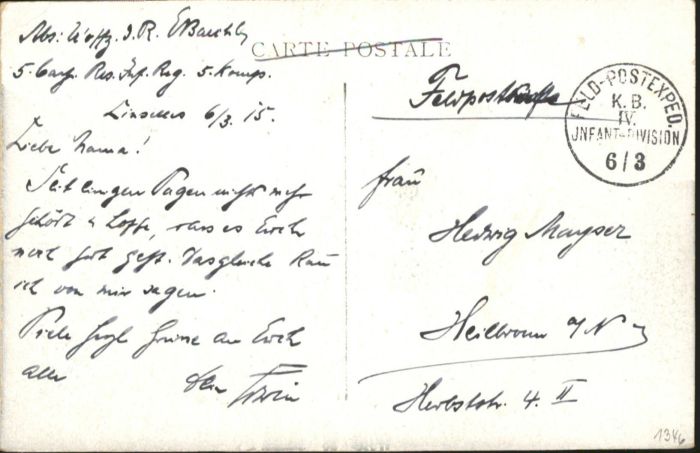 Abs: Uoffz. d. R. E Baechle
CARTE POSTALE
5. bayr. Res. Inf. Reg. 5. Komp.
Linselles 6/3. 15.
Liebe Mama!
Seit einigen Tagen nichts mehr
gehört u hoffe, dass es Euch
noch gut geht. Dasgleiche kann
ich von mir sagen.
Viele herzl Grüsse an Euch
alle Dein Erwin
Feldpostkarte
FELD-POSTEXPED.
K. B.
IV.
INFANT-DIVISION
6/3
Frau
Hedwig Mayser
Heilbronn a/N
Herbststr. 4. II
1346